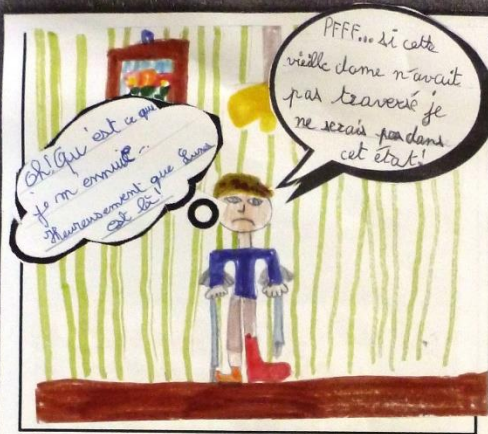 Oh! Qu'est ce que
je m'ennuie...
Heureusement que Luna
est là!
PFFF... si cette
vieille dame n'avait
pas traversé je
ne serais pas dans
cet état!